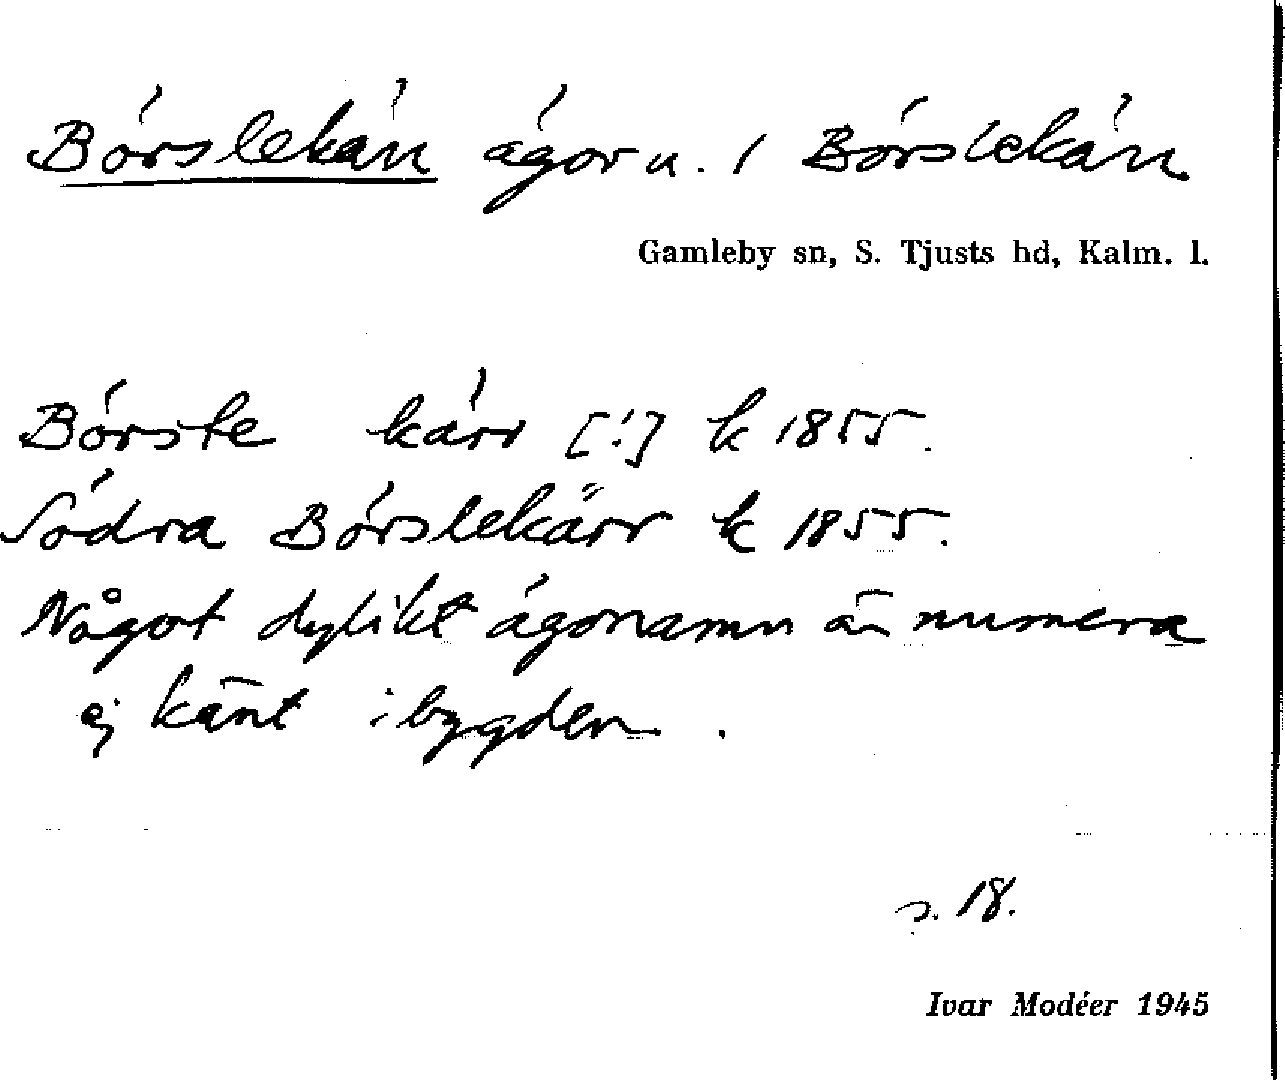 Börslekärr ägor u. / Börslekärr
Gamleby sn, S. Tjusts hd, Kalm. l.
Börste kärr [!] k 1855.
Södra Börslekärr k 1855.
Något dylikt ägonamn är numera
ej känt i bygden.
s. 18.
Ivar Modéer 1945